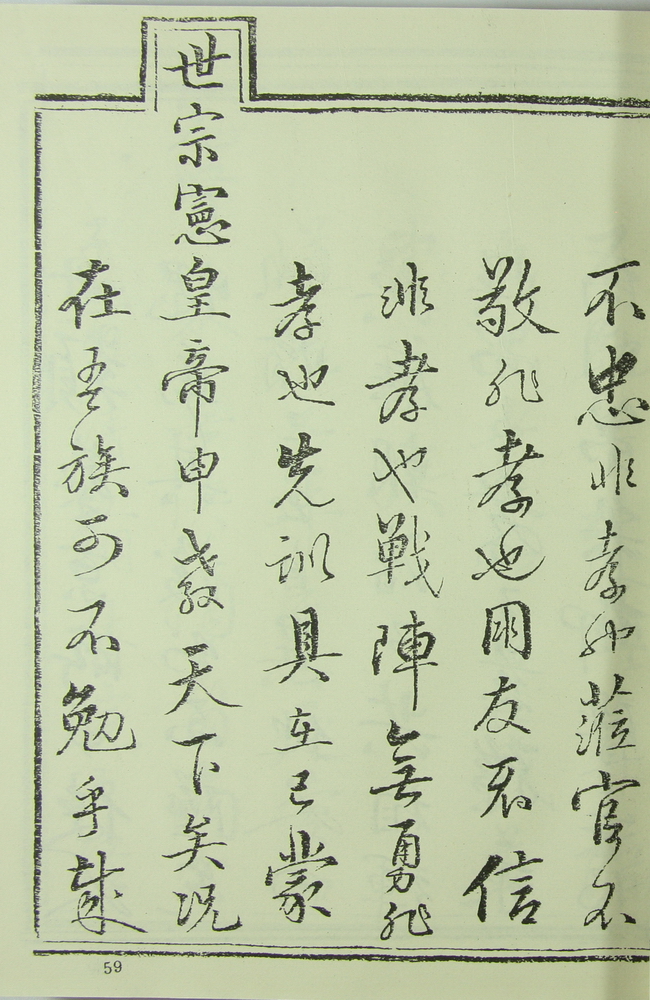 不忠非孝也蒞官不
敬非孝也朋友不信
非孝也戰陣無勇非
孝也先訓具在已蒙
世宗憲皇帝申教天下矣況
在吾族可不勉乎哉
59